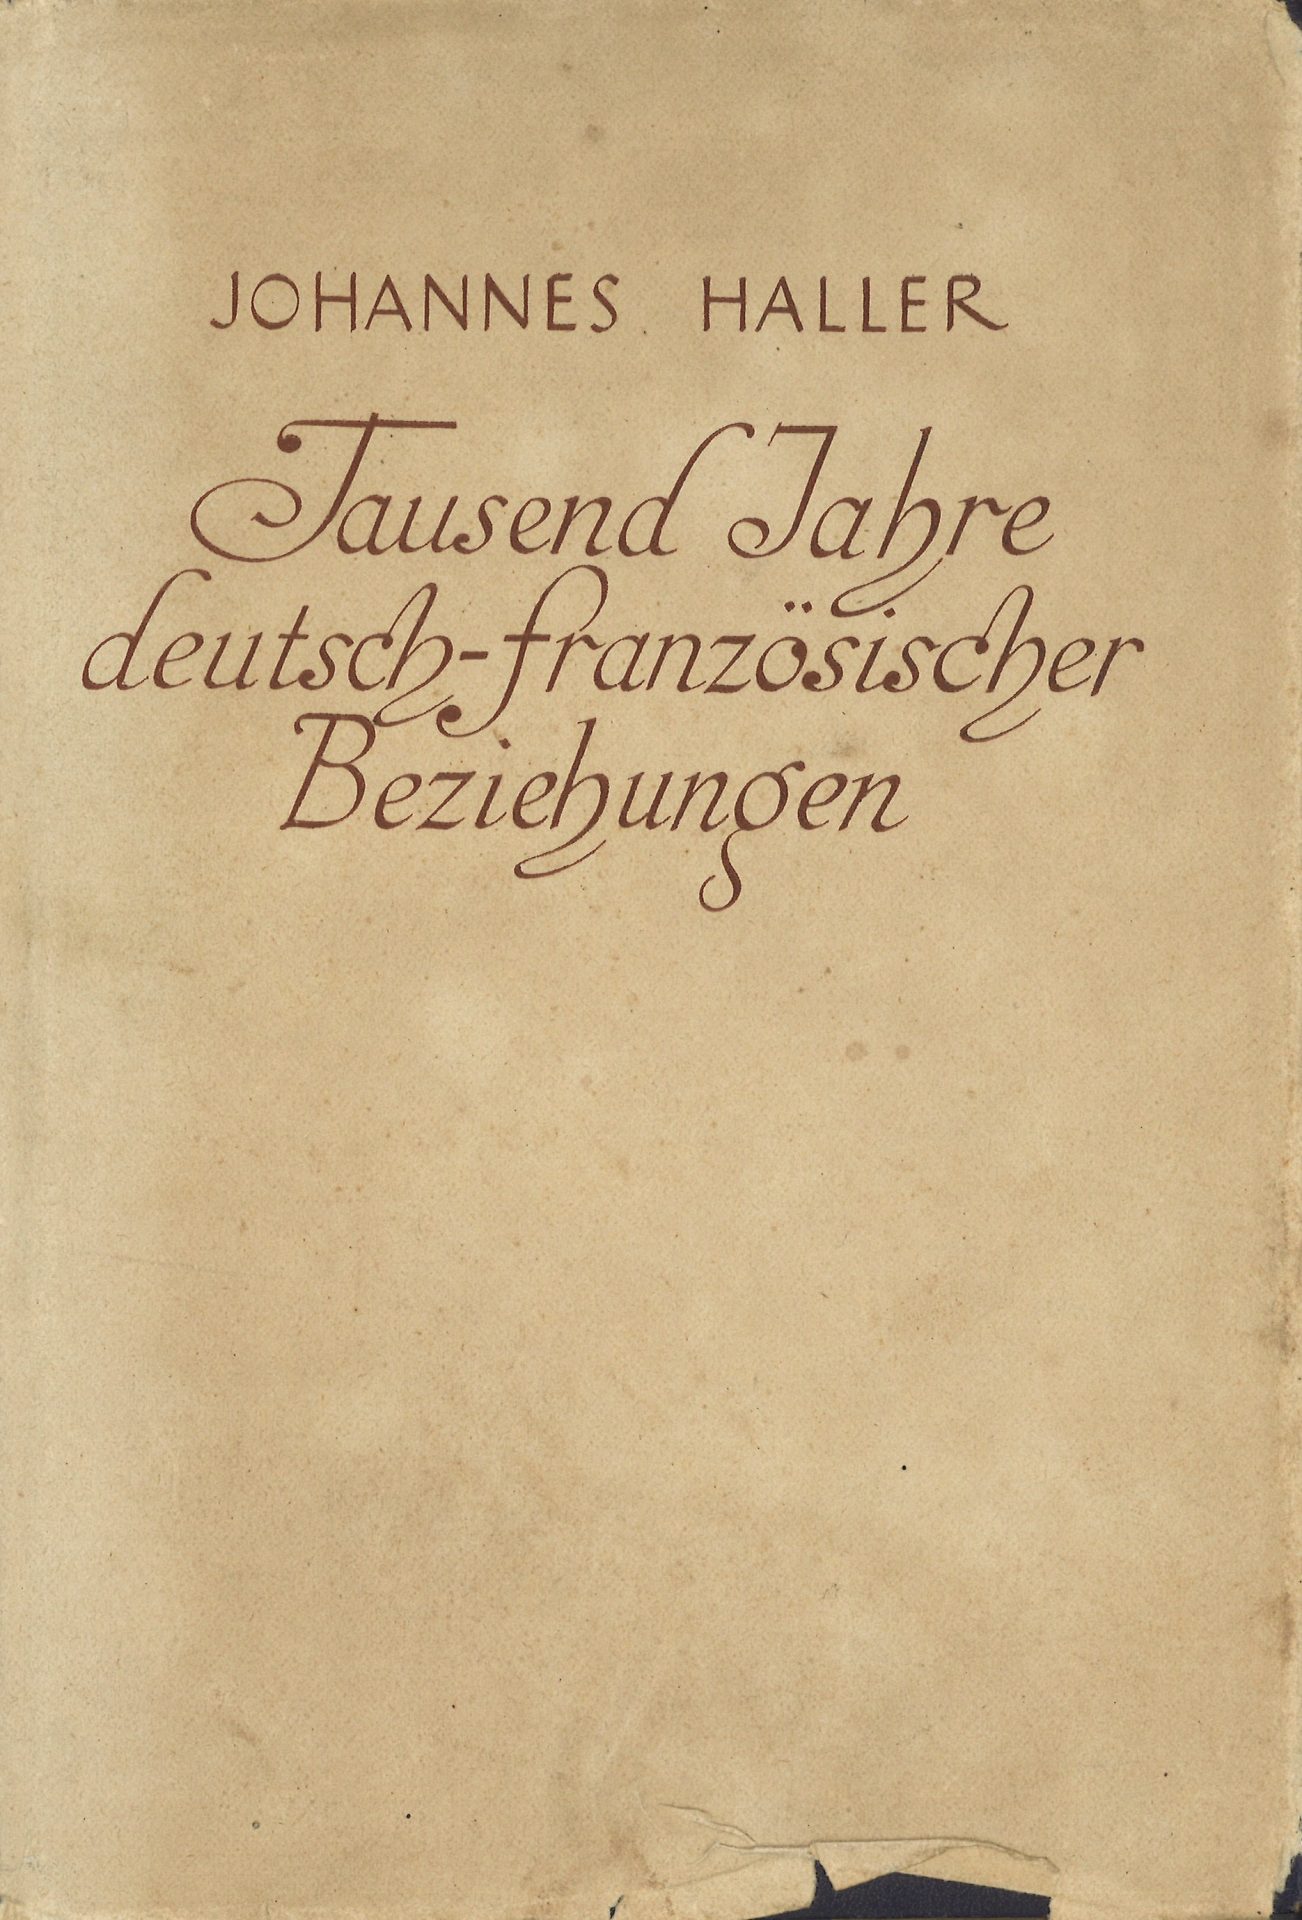 JOHANNES HALLER
Tausend Jahre
deutsch-französischer
Beziehungen